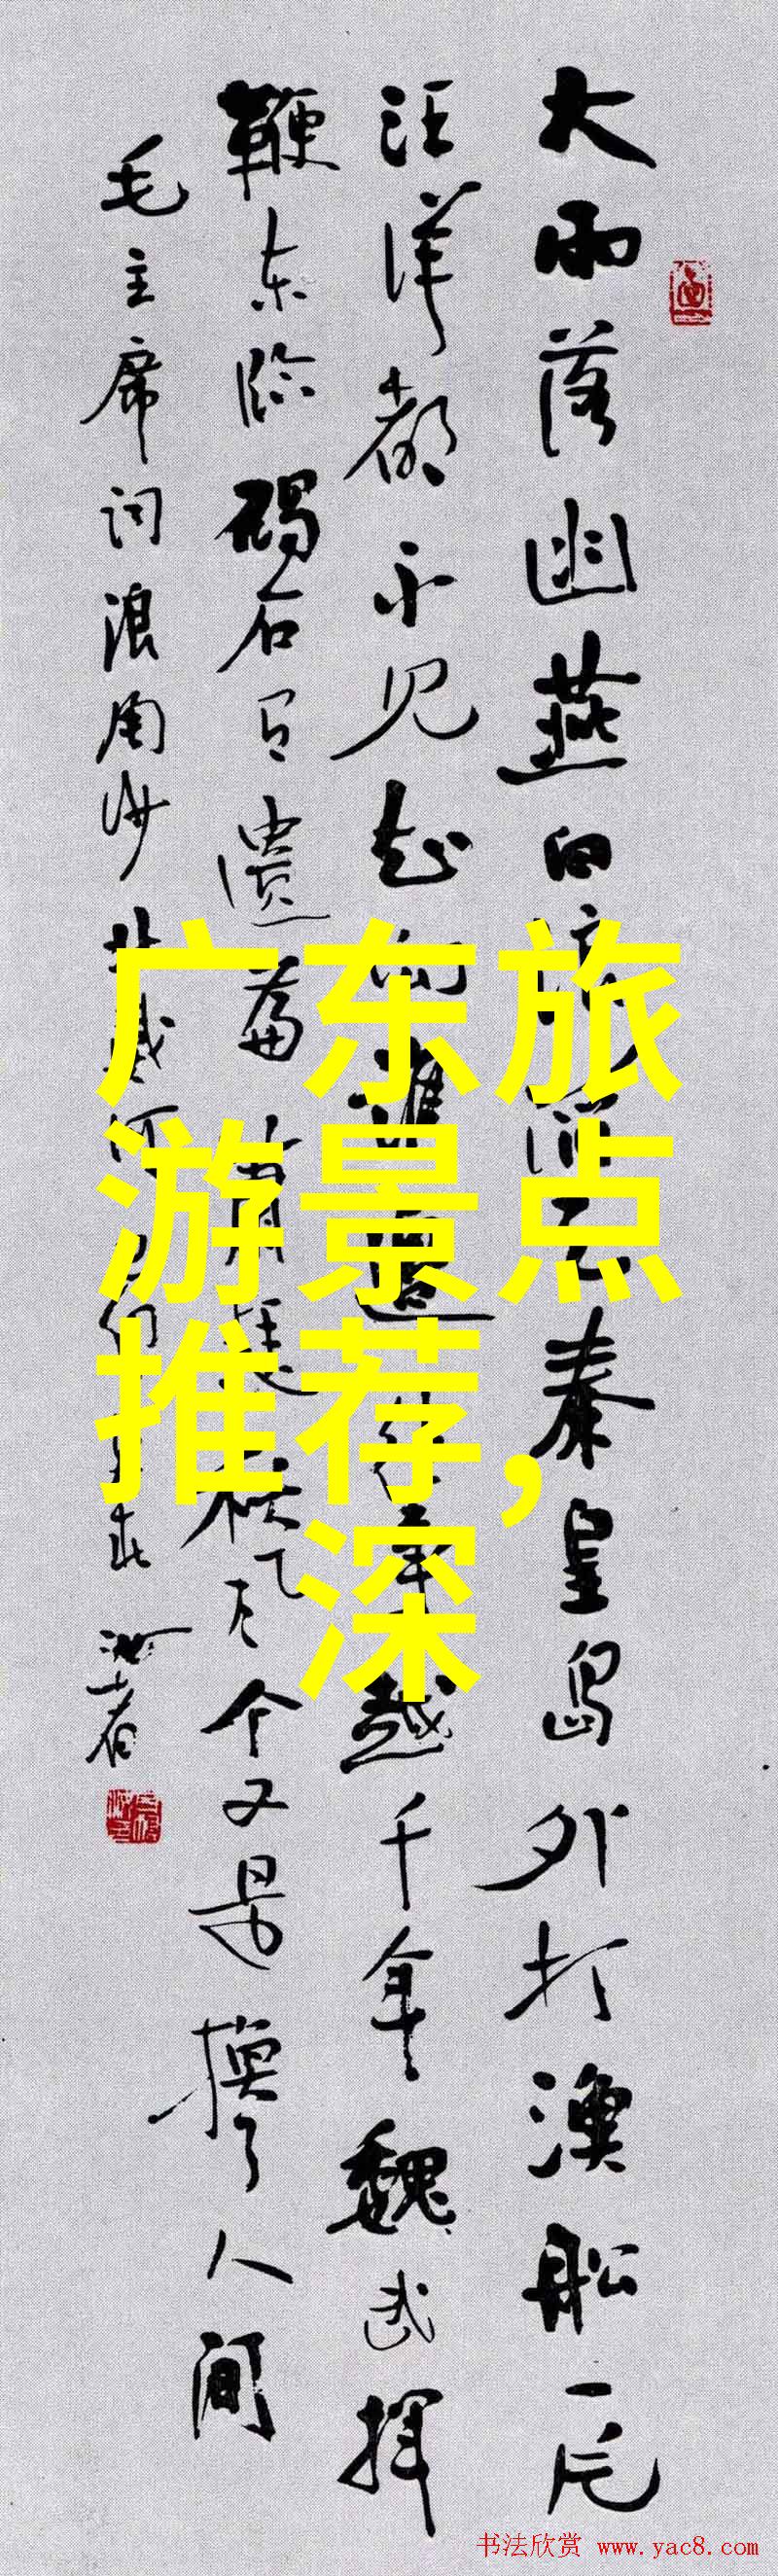 大雨落幽燕白浪滔天秦皇島外打漁船一片
汪洋都不见知向誰邊往事越千年魏武揮
鞭东临碣石有遗篇萧瑟秋风今又是换了人间
毛主席词浪淘沙北戴河
广东旅
游景点
推荐，
深
书法欣赏 www.yac8.com